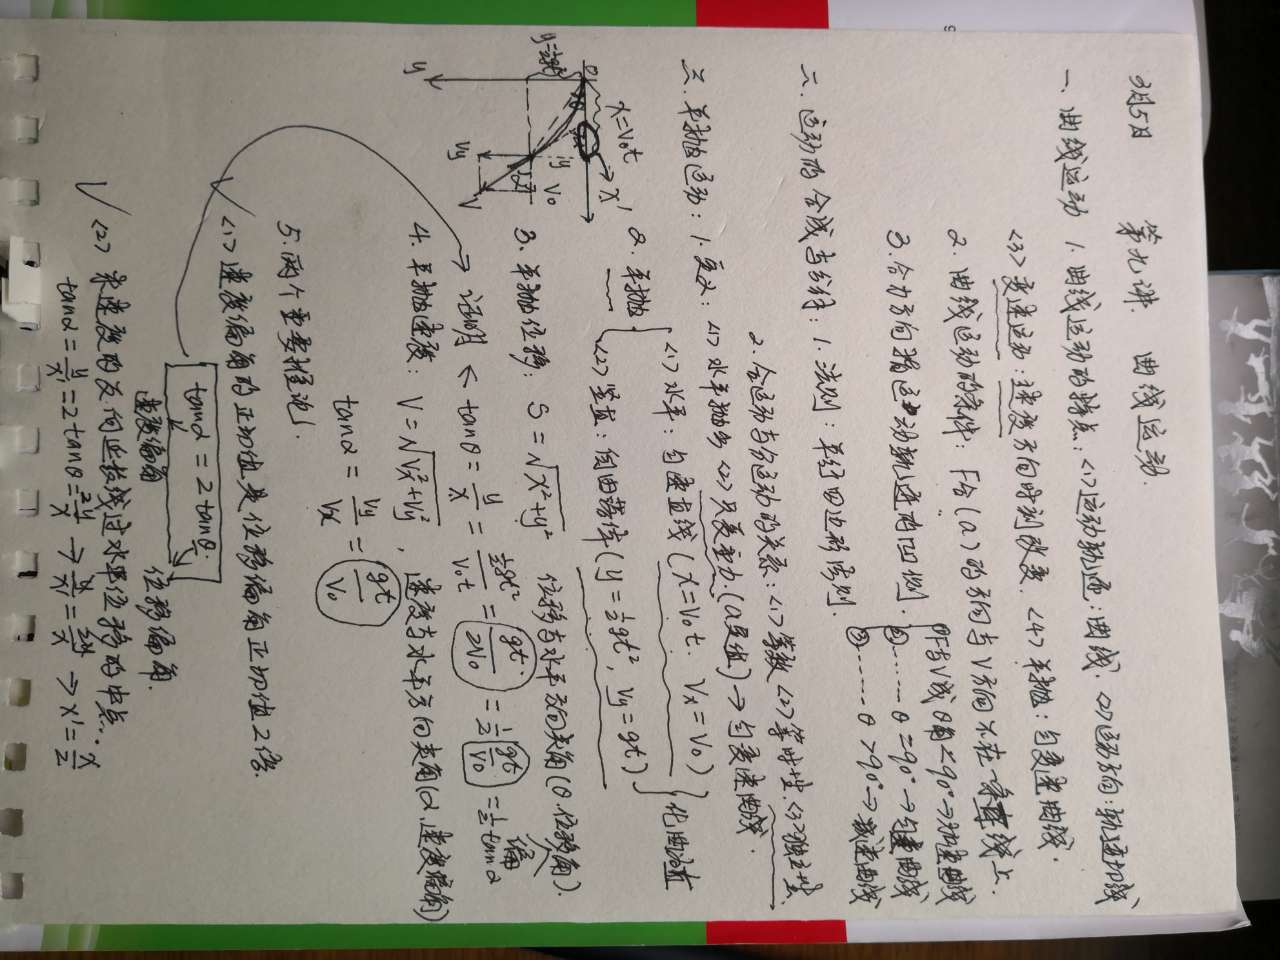 3月5日 第九讲. 曲线运动.
一. 曲线运动 1. 曲线运动的特点: <1>运动轨迹: 曲线. <2>运动方向: 轨迹切线
<3> 变速运动: 速度方向时刻改变. <4> 平抛: 匀变速曲线.
2. 曲线运动的条件: F合(a)的方向与V方向不在一条直线上.
3. 合力方向指运动轨迹的凹侧.
F合与V成θ角<90°→加速曲线
②…… θ=90°→匀速曲线
③…… θ>90°→减速曲线
二. 运动的合成与分解: 1. 法则: 平行四边形法则
2. 合运动与分运动的关系: <1>等效 <2>等时性 <3>独立性
三. 平抛运动: 1. 定义: <1> 水平抛出 <2> 只受重力 (a是值) → 匀变速曲线.
2. 平抛
<1> 水平: 匀速直线 (x=V₀t. Vx=V₀)
<2> 竖直: 自由落体 (y=½gt², Vy=gt)
化曲为直
3. 平抛位移: S=√x²+y² 位移与水平方向夹角(θ.位移偏角).
→ 证明 ← tanθ = y/x = ½gt²/V₀t = gt/2V₀ = ½ gt/V₀ = ½tanα
4. 平抛速度: V=√Vx²+Vy², 速度与水平方向夹角(α.速度偏角)
tanα = Vy/Vx = gt/V₀
5. 两个重要推论.
√ <1> 速度偏角的正切值是位移偏角正切值2倍.
tanα = 2tanθ.
速度偏角 位移偏角.
√ <2> 末速度的反向延长线过水平位移的中点.
tanα = y/x' = 2tanθ = 2y/x → y/x' = 2y/x → x' = x/2
y=½gt²
x=V₀t
x'
y
θ
α
V₀
Vy
V